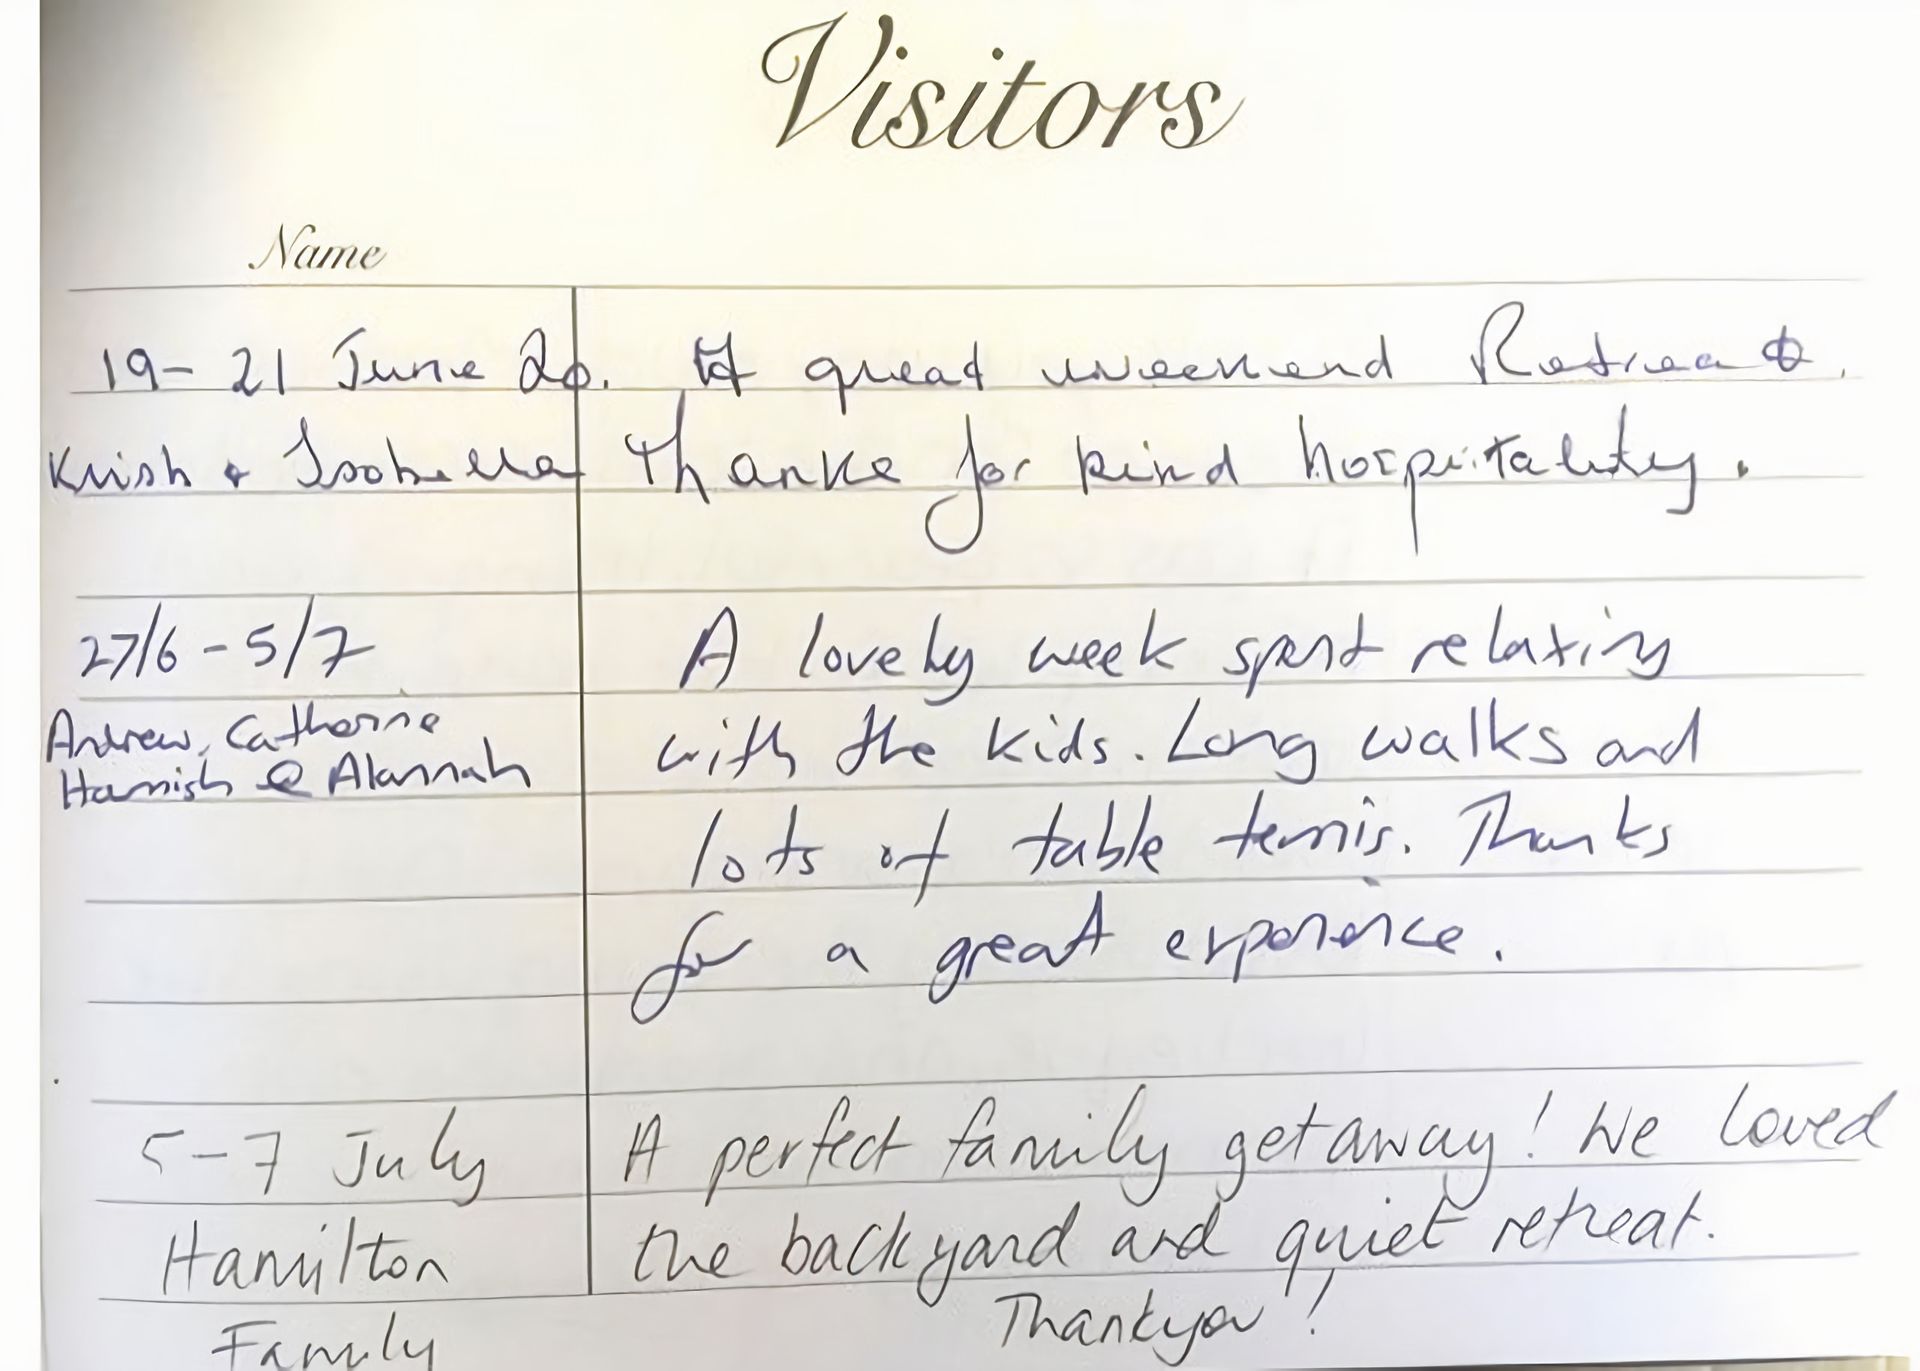 Visitors
Name
19 - 21 June 20. A great weekend Retreat.
Krish & Isobella Thanks for kind hospitality.
27/6 - 5/7 A lovely week spent relaxing
Andrew, Catherine with the kids. Long walks and
Hamish & Alannah
lots of table tennis. Thanks
for a great experience.
5-7 July A perfect family getaway! We loved
Hamilton the backyard and quiet retreat.
Family Thankyou!